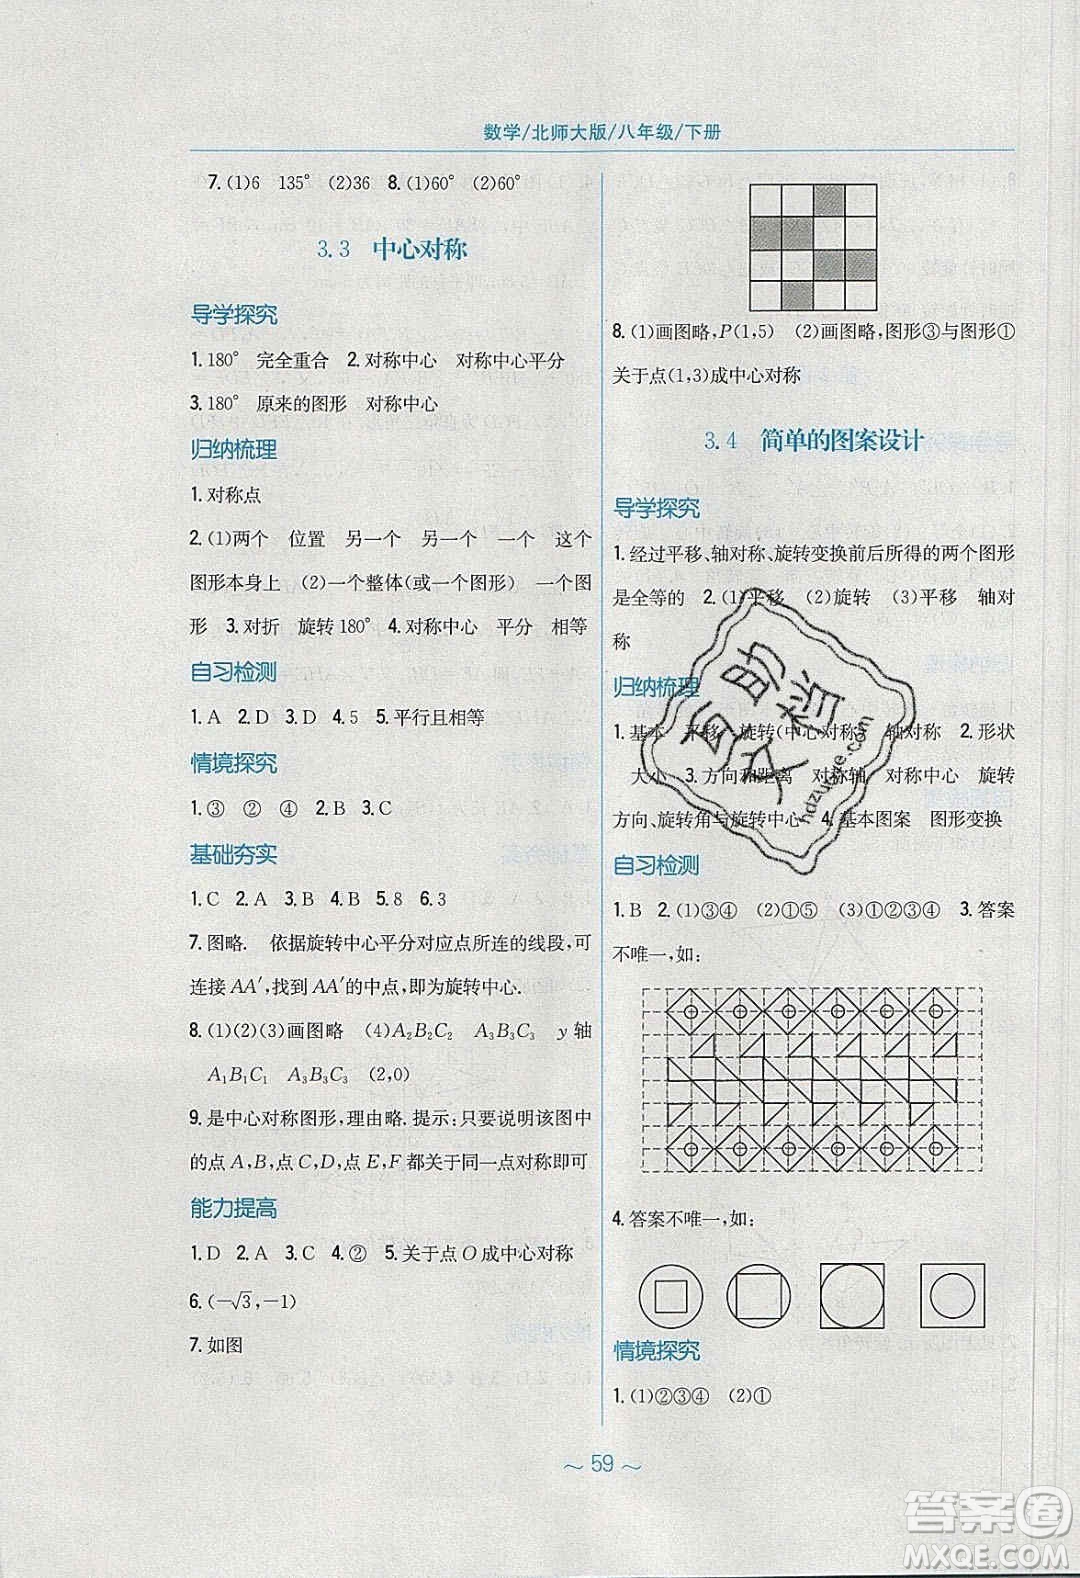 数学/北师大版/八年级/下册
7.(1)6 135° (2)36 8.(1)60° (2)60°
3.3 中心对称
导学探究
1.180° 完全重合 2.对称中心 对称中心平分
3.180° 原来的图形 对称中心
归纳梳理
1.对称点
2.(1)两个 位置 另一个 另一个 一个 这个
图形本身上 (2)一个整体(或一个图形) 一个图
形 3.对折 旋转180° 4.对称中心 平分 相等
自习检测
1.A 2.D 3.D 4.5 5.平行且相等
情境探究
1.③ ② ④ 2.B 3.C
基础夯实
1.C 2.A 3.B 4.B 5.A 6.3
7.图略. 依据旋转中心平分对应点所连的线段,可
连接AA′,找到AA′的中点,即为旋转中心.
8.(1)(2)(3)画图略 (4)A₂B₂C₂ A₃B₃C₃ y轴
A₁B₁C₁ A₃B₃C₃ (2,0)
9.是中心对称图形,理由略.提示:只要说明该图中
的点A,B,点C,D,点E,F都关于同一点对称即可
能力提高
1.D 2.A 3.C 4.② 5.关于点O成中心对称
6.(-√3,-1)
7.如图
8.(1)画图略,P(1,5) (2)画图略,图形③与图形①
关于点(1,3)成中心对称
3.4 简单的图案设计
导学探究
1.经过平移、轴对称、旋转变换前后所得的两个图形
是全等的 2.(1)平移 (2)旋转 (3)平移 轴对
称
归纳梳理
1.基本 平移 旋转(中心对称) 轴对称 2.形状
大小 3.方向和距离 对称轴 对称中心 旋转
方向、旋转角与旋转中心 4.基本图案 图形变换
自习检测
1.B 2.(1)③④ (2)①⑤ (3)②③④ 3.答案
不唯一,如:
4.答案不唯一,如:
情境探究
1.(1)②③④ (2)①
～ 59 ～
互助文档
hdzuoye.com
答案圈
MXQE.COM